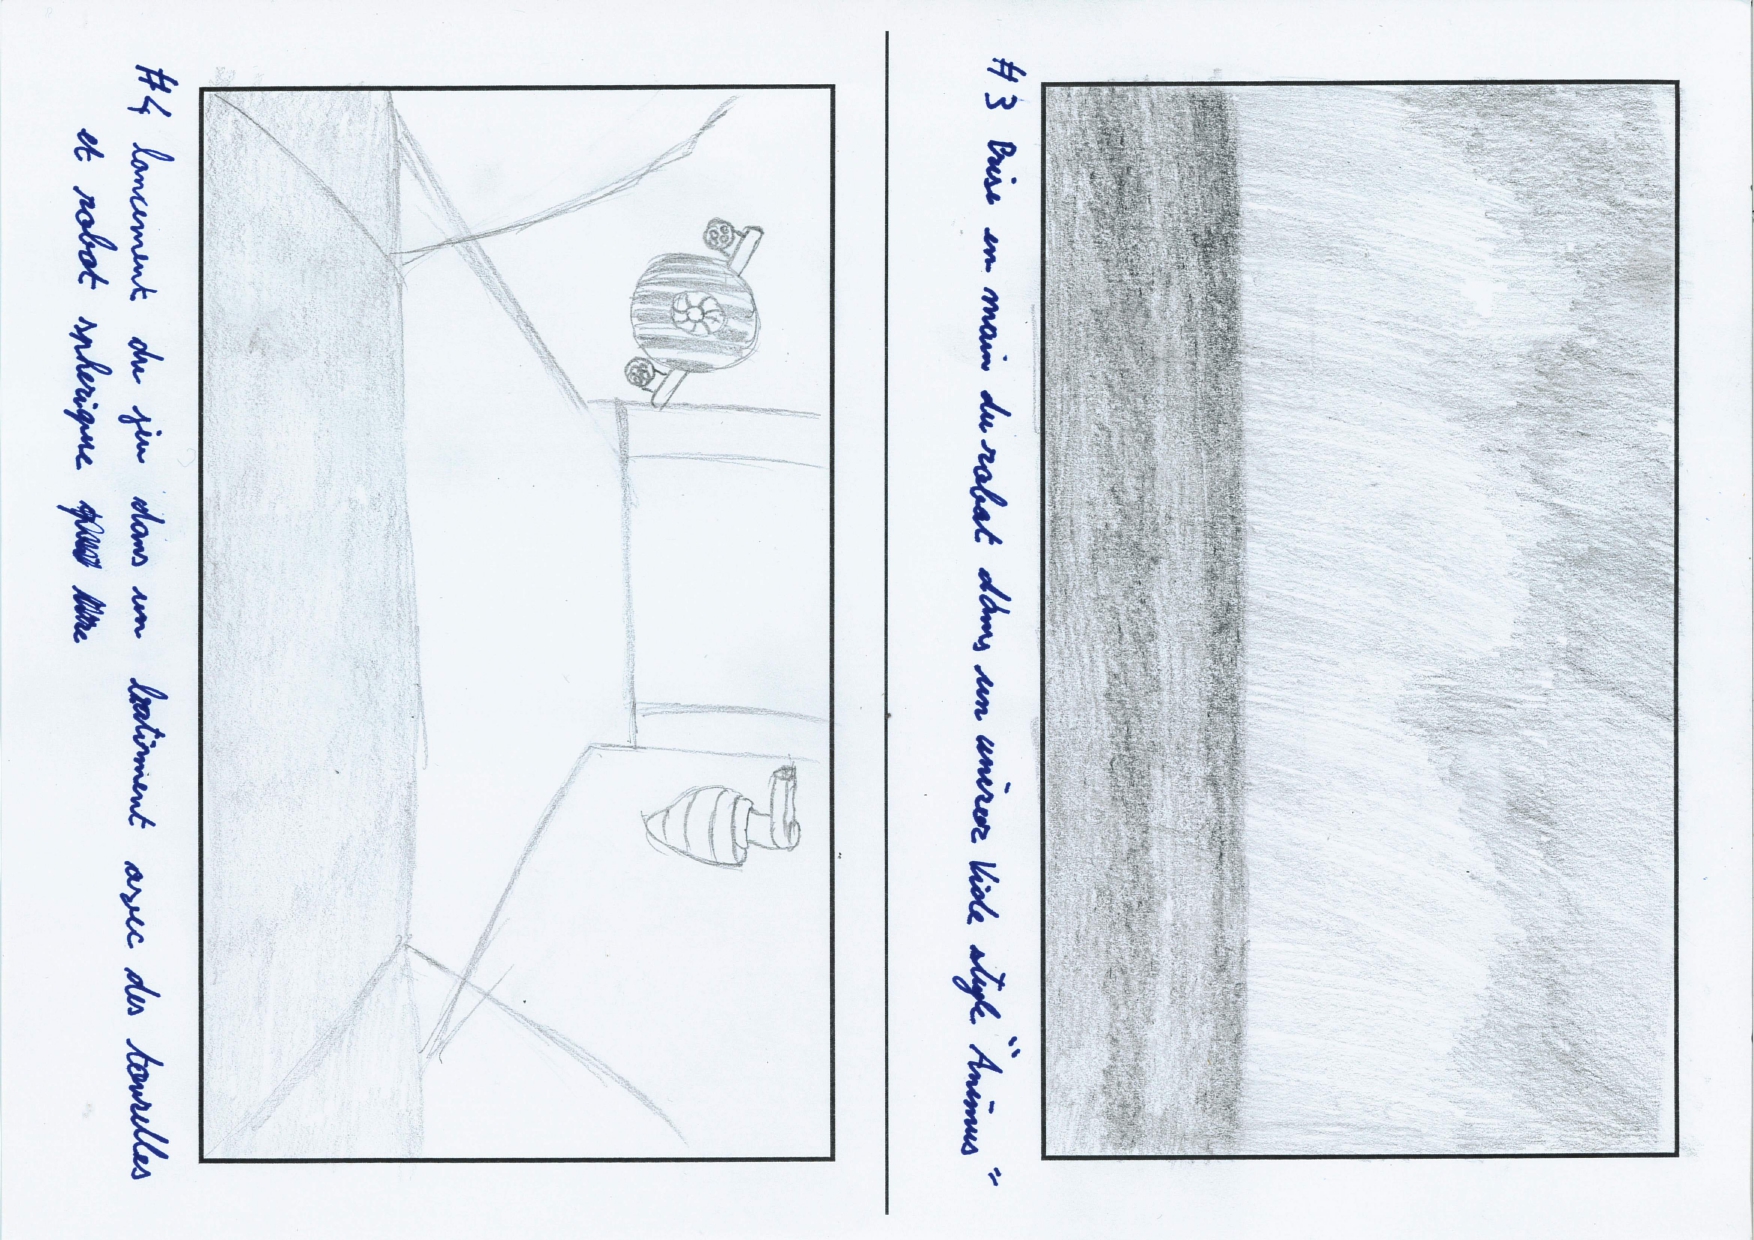 #3 Prise en main du robot dans un univer Vide style "Animus"
#4 lancement du jeu dans un batiment avec des tourelles
et robot spherique